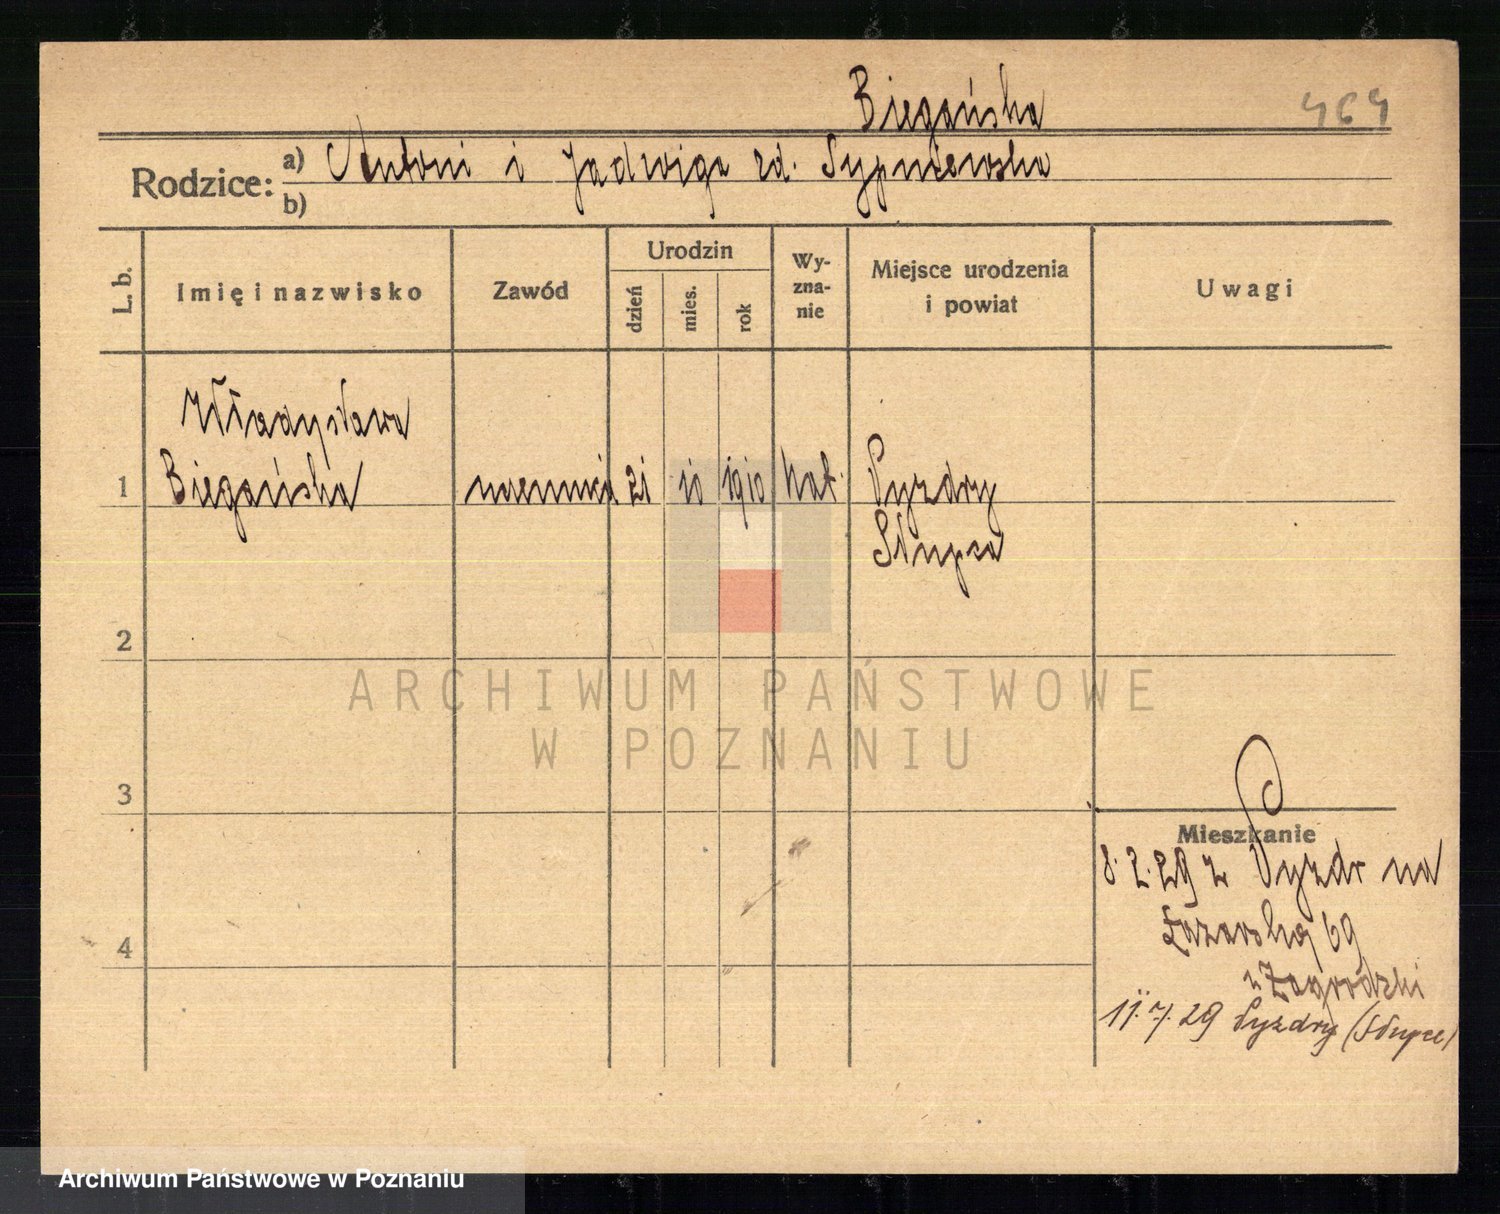 Biegańska 464
Rodzice: a) Antoni i Jadwiga zd. Sypniewska
b)
L. b. Imię i nazwisko Zawód Urodzin dzień mies. rok Wy-zna-nie Miejsce urodzenia i powiat Uwagi
Władysława
1 Biegańska 21 10 1910 kat. Pyzdry
Słupca
2
ARCHIWUM PAŃSTWOWE
W POZNANIU
3
Mieszkanie
8.2.29 z Pyzdr na
4 Łazarską 69
u Zagrodzki
11.7.29 Pyzdry (Słupca)
Archiwum Państwowe w Poznaniu